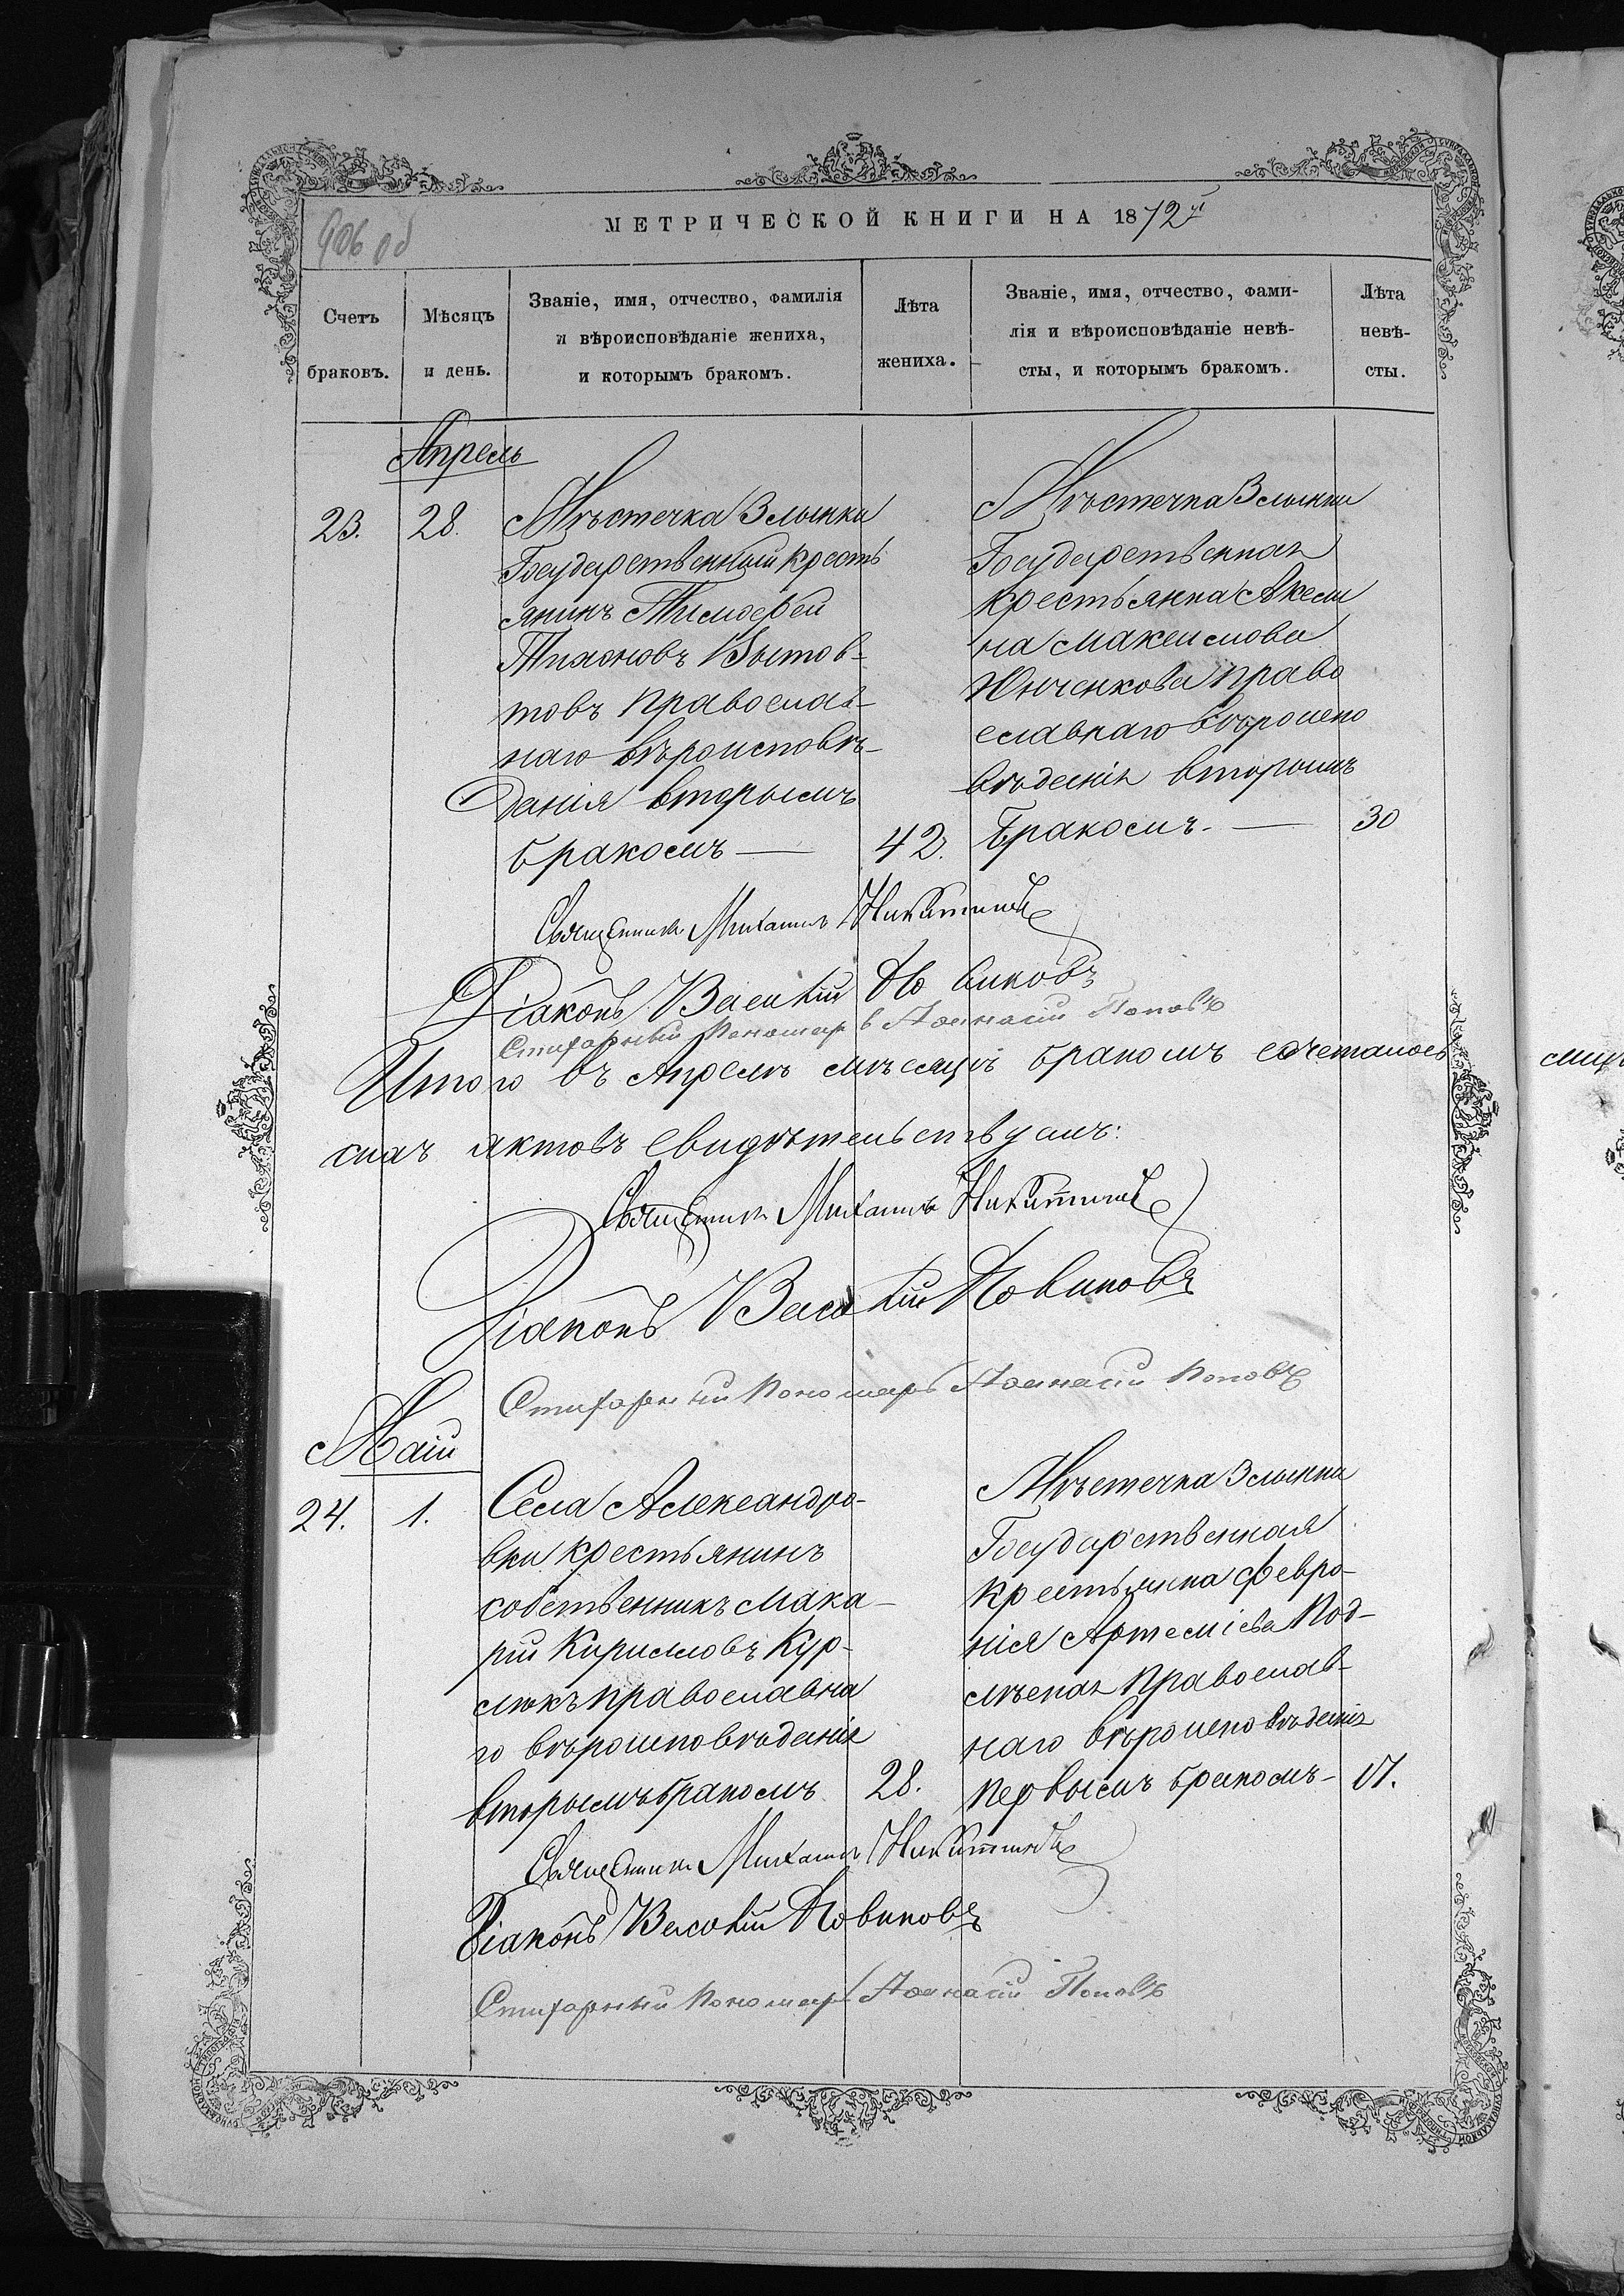 906 об
МЕТРИЧЕСКОЙ КНИГИ НА 1872й
Счетъ браковъ.
Мѣсяцъ и день.
Званіе, имя, отчество, фамилія
и вѣроисповѣданіе жениха,
и которымъ бракомъ.
Лѣта жениха.
Званіе, имя, отчество, фами-
лія и вѣроисповѣданіе невѣ-
сты, и которымъ бракомъ.
Лѣта невѣ-
сты.
Апрель
23. 28.
Мѣстечка Злынки
Государственный кресть
янинъ Тимофей
Тихоновъ
товъ православ-
наго вѣроисповѣ-
данія вторымъ
бракомъ — 42.
Мѣстечка Злынки
Государственная
крестьянка Акели
на Максимова
Юнченкова право
славнаго вѣроиспо
вѣданія вторымъ
бракомъ. — 30
Священникъ Михаилъ Никитинъ
Діаконъ Василій Новиковъ
Стихарный Пономарь Афанасій Поповъ
Итого въ Апрелѣ мѣсяцѣ бракомъ сочеталось
сихъ актовъ свидѣтельствуемъ:
Священникъ Михаилъ Никитинъ
Діаконъ Василій Новиковъ
Стихарный Пономарь Афанасій Поповъ
Маій
24. 1.
Села Александро-
вки крестьянинъ
собственникъ Мака-
рій Кирилловъ Кур-
люкъ православна
го вѣроисповѣданія
вторымъ бракомъ 28.
Мѣстечка Злынки
Государственная
крестьянка Февро-
нія Артеміева Под-
православ-
наго вѣроисповѣданія
первымъ бракомъ - 17.
Священникъ Михаилъ Никитинъ
Діаконъ Василій Новиковъ
Стихарный Пономарь Афанасій Поповъ